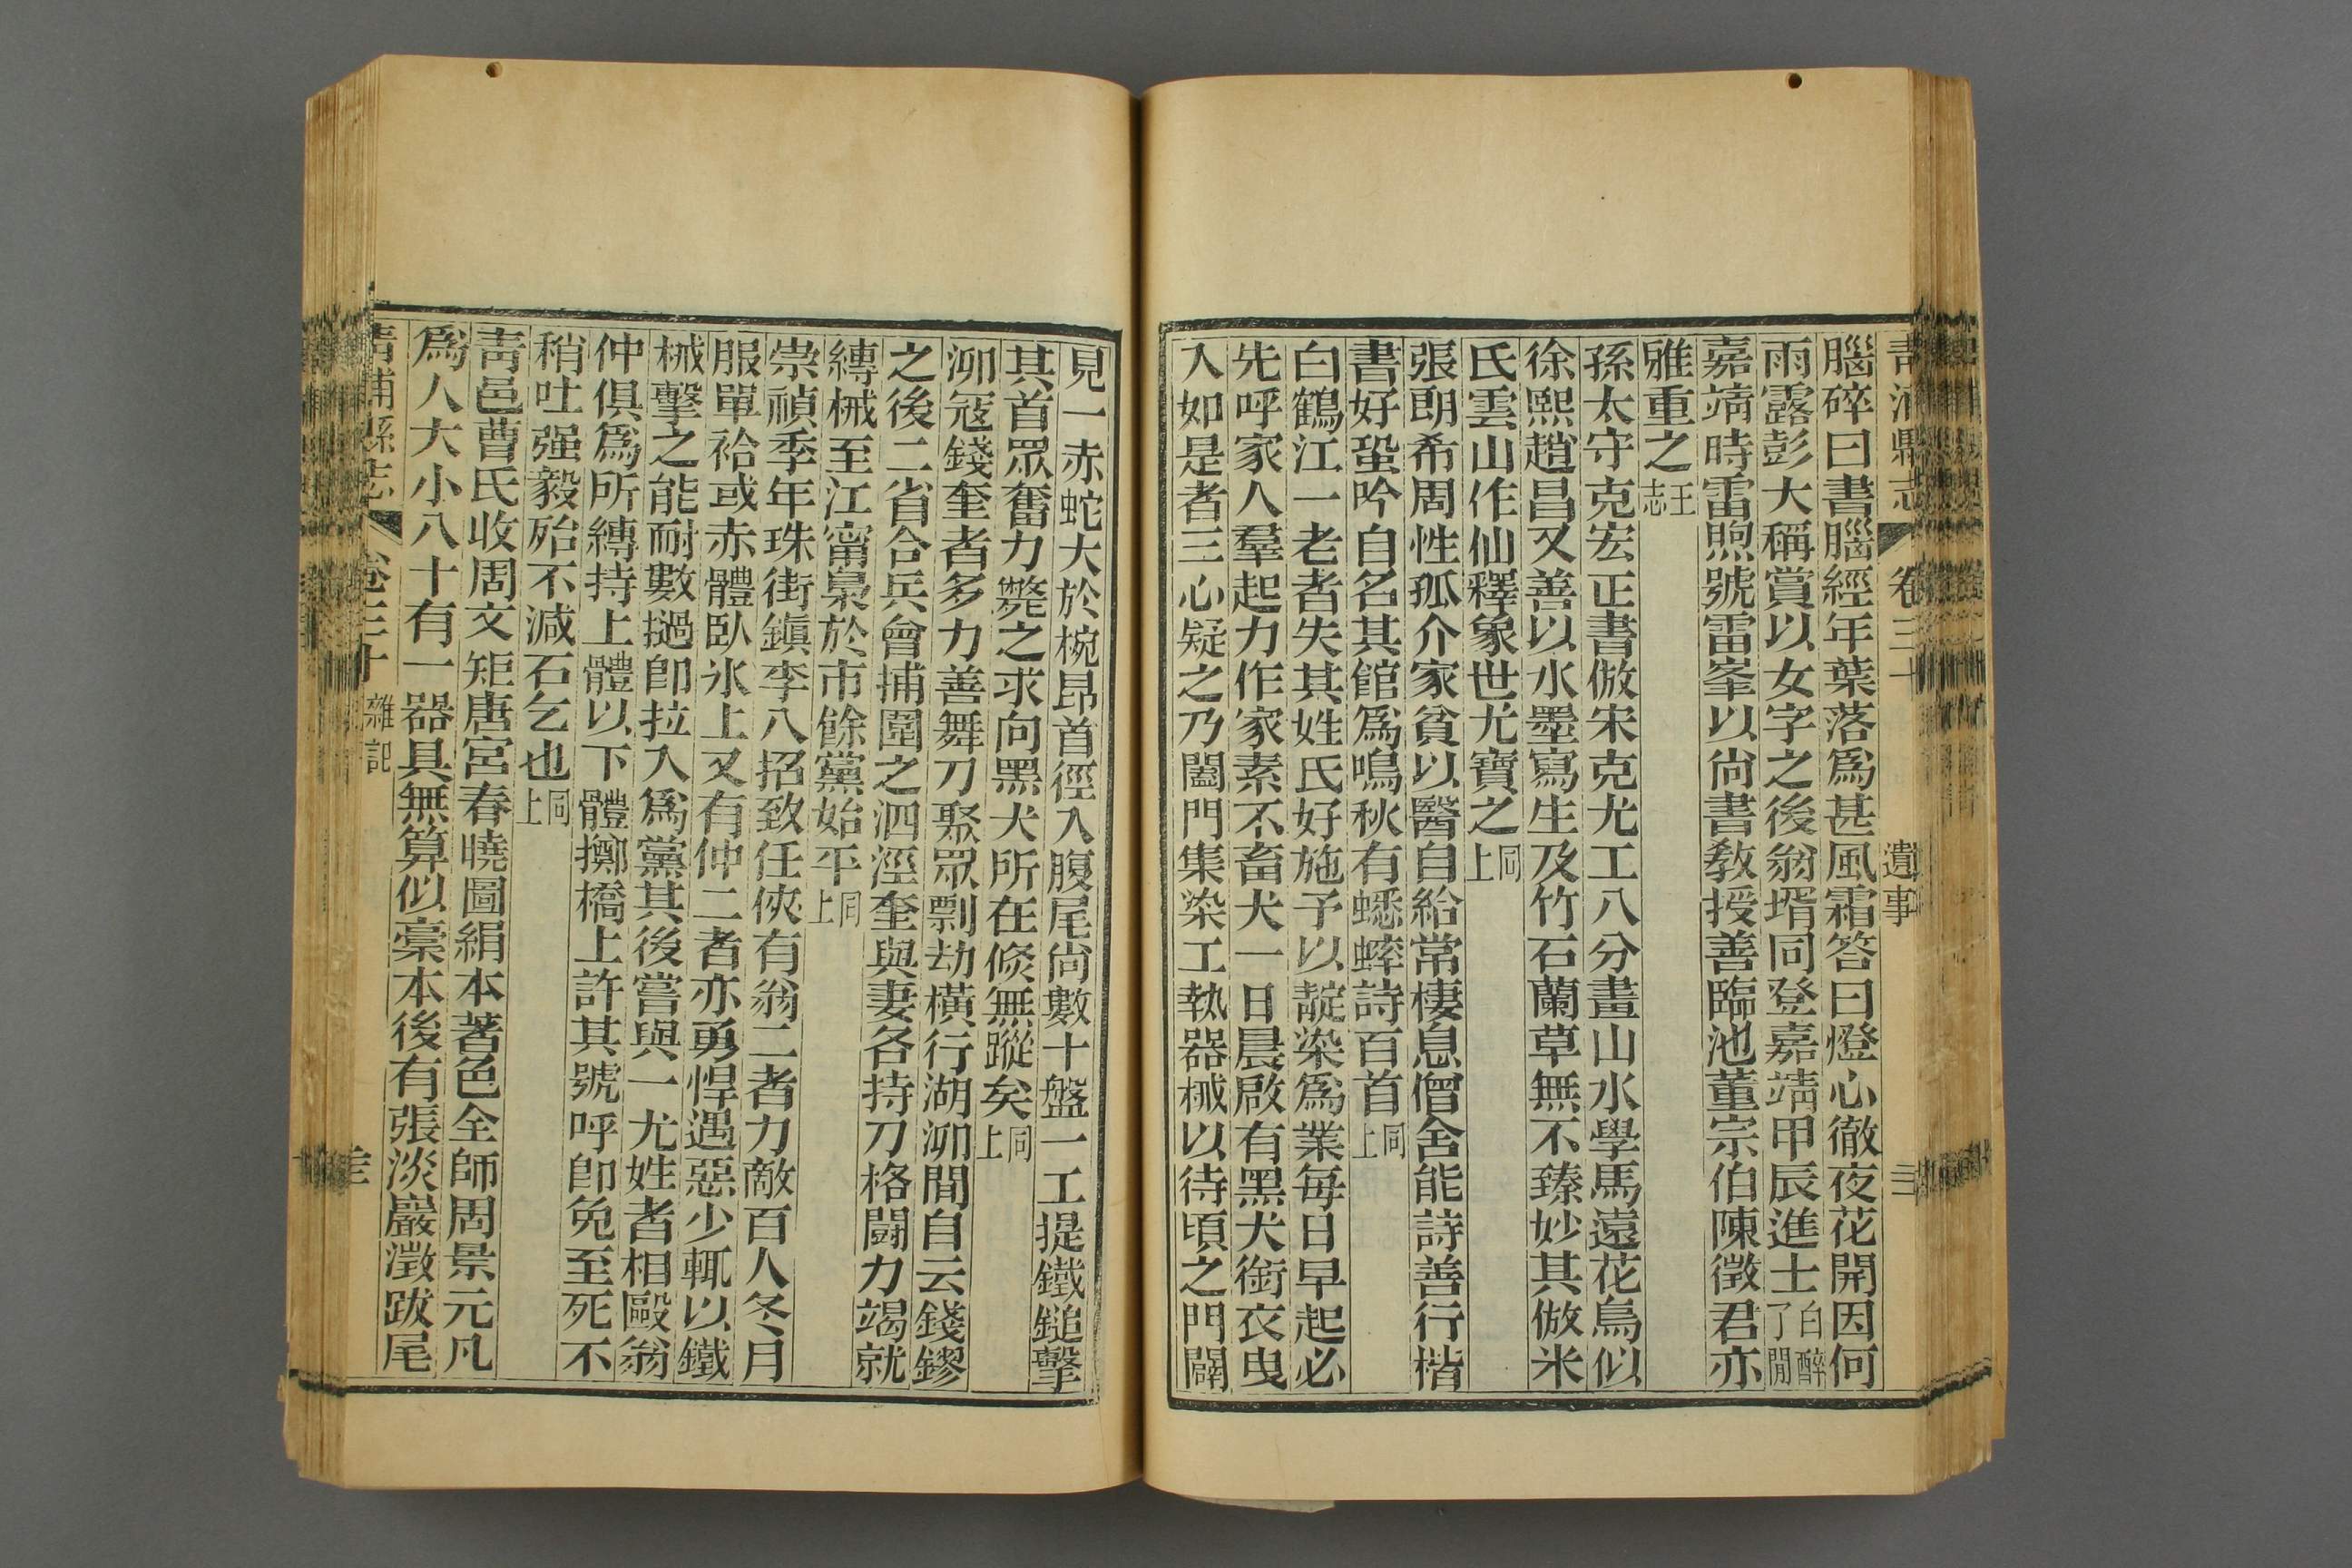 青浦縣志 卷三十 遺事
腦碎曰書腦經年葉落爲甚風霜答曰燈心徹夜花開因何
雨露彭大稱賞以女字之後翁壻同登嘉靖甲辰進士白醉了閒
嘉靖時雷煦號雷峯以尙書敎授善臨池董宗伯陳徵君亦
雅重之王志
孫太守克宏正書倣宋克尤工八分畫山水學馬遠花鳥似
徐熙趙昌又善以水墨寫生及竹石蘭草無不臻妙其倣米
氏雲山作仙釋象世尤寶之同上
張朗希周性孤介家貧以醫自給常棲息僧舍能詩善行楷
書好蛩吟自名其館爲鳴秋有蟋蟀詩百首同上
白鶴江一老者失其姓氏好施予以靛染爲業每日早起必
先呼家人羣起力作家素不畜犬一日晨啟有黑犬銜衣曳
入如是者三心疑之乃闔門集染工執器械以待頃之門闢
見一赤蛇大於椀昂首徑入腹尾尙數十盤一工提鐵鎚擊
其首眾奮力斃之求向黑犬所在倐無蹤矣同上
泖寇錢奎者多力善舞刀聚眾剽劫橫行湖泖間自云錢鏐
之後二省合兵曾捕圍之泗涇奎與妻各持刀格鬭力竭就
縛械至江甯梟於市餘黨始平同上
崇禎季年珠街鎭李八招致任俠有翁二者力敵百人冬月
服單袷或赤體臥氷上又有仲二者亦勇悍遇惡少輒以鐵
械擊之能耐數撾卽拉入爲黨其後嘗與一尤姓者相毆翁
仲俱爲所縛持上體以下體擲橋上許其號呼卽免至死不
稍吐强毅殆不減石乞也同上
靑邑曹氏收周文矩唐宮春曉圖絹本著色全師周景元凡
爲人大小八十有一器具無算似槀本後有張淡巖澂跋尾
青浦縣志 卷三十 雜記